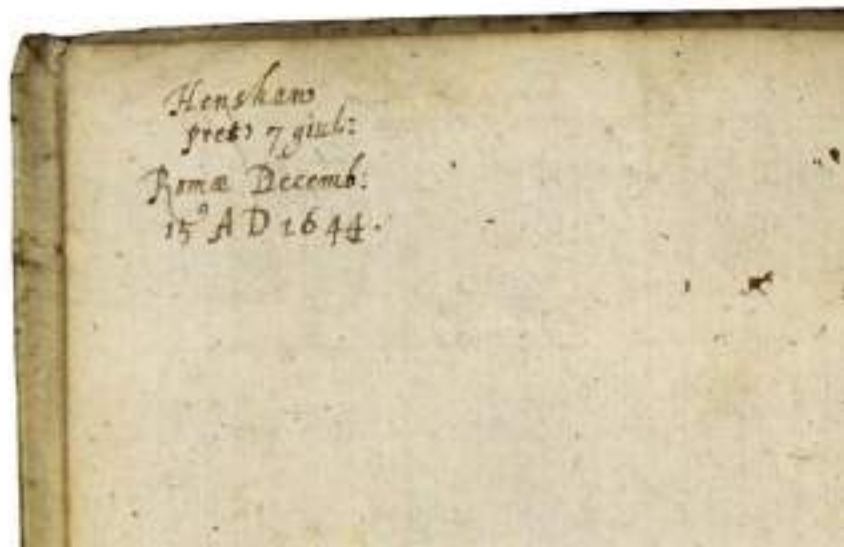 Henshaw
pret> 7 giul:
Romæ Decemb:
15° A D 1644.